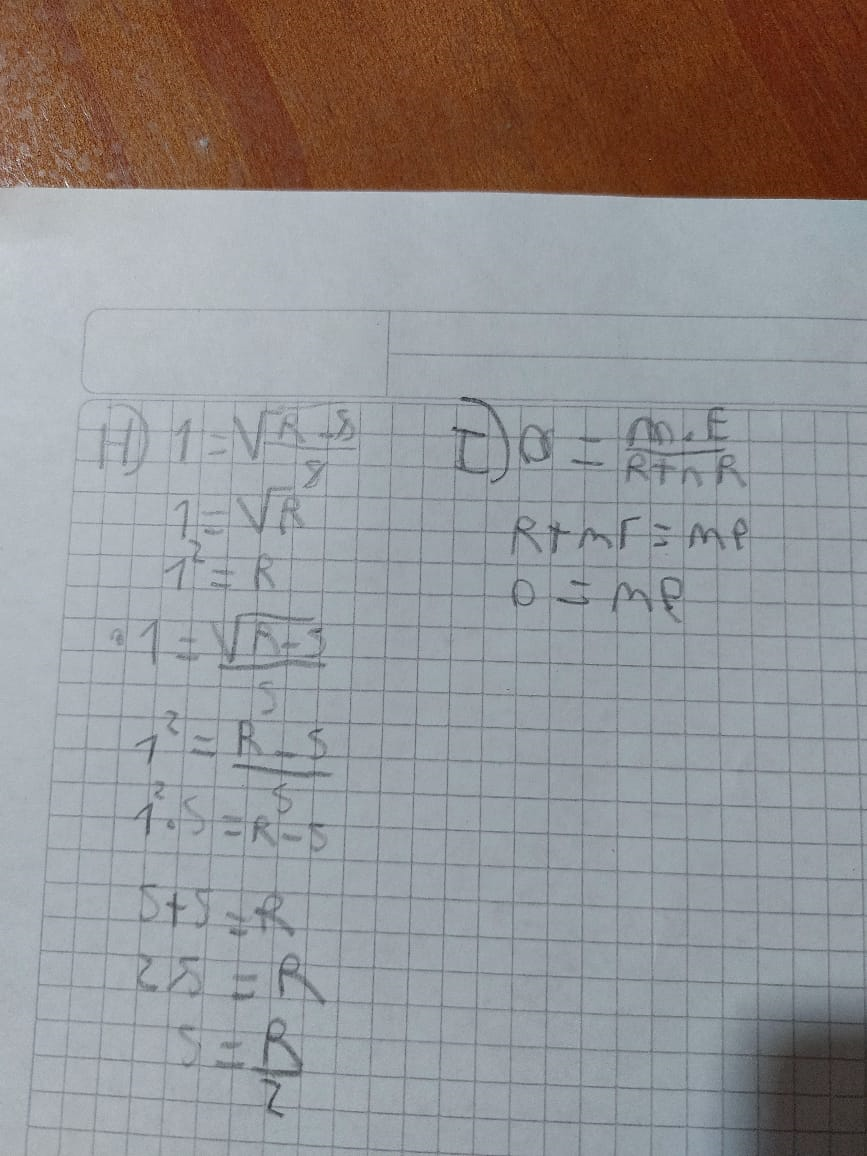 H) 1 = √R-S / S
1 = √R
1² = R
1 = √R-S / S
1² = R-S / S
1².S = R-S
S+S = R
2S = R
S = R / 2
I) 0 = m.E / R+nR
R+mr = me
0 = me